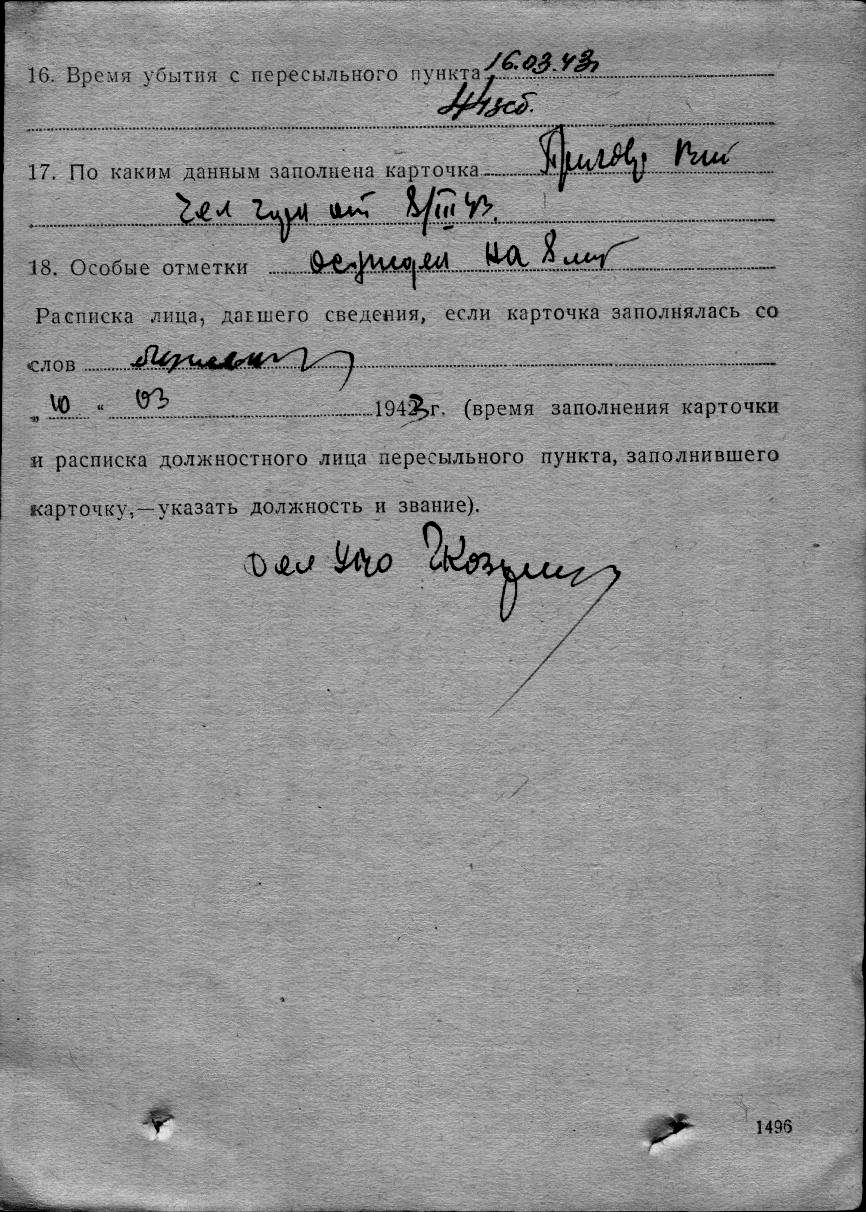 16. Время убытия с пересыльного пункта 16.03.43
44 зсб.
17. По каким данным заполнена карточка Приговор
от 8/III 43.
18. Особые отметки осужден на 8 лет
Расписка лица, давшего сведения, если карточка заполнялась со
слов
„10“ 03 1943 г. (время заполнения карточки
и расписка должностного лица пересыльного пункта, заполнившего
карточку,—указать должность и звание).
1496